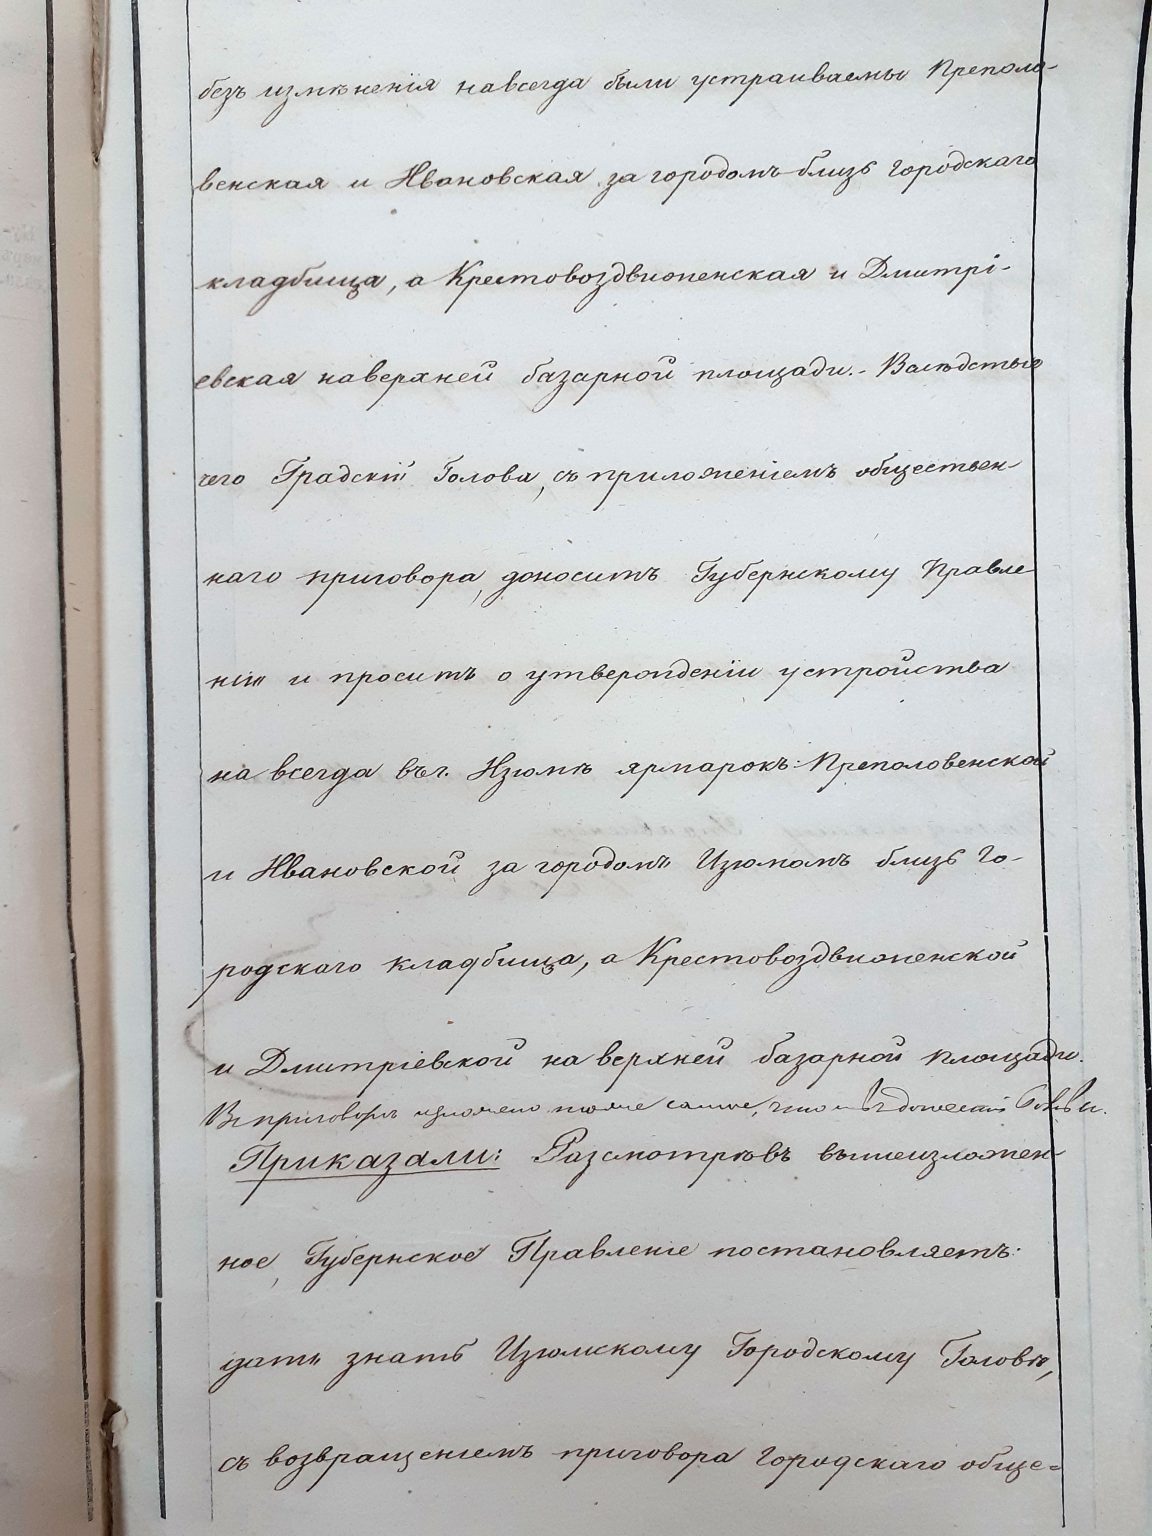 безъ измѣненія навсегда были устраиваемы Преполо-
венская и Ивановская за городомъ близь городскаго
кладбища, а Крестовоздвиженская и Дмитрі-
евская на верхней базарной площади.- Вслѣдствіе
чего Градскій Голова, съ приложеніемъ обществен-
наго приговора, доноситъ Губернскому Правле-
нію и проситъ о утвержденіи устройства
на всегда въ г. Изюмѣ ярмарокъ: Преполовенской
и Ивановской за городомъ Изюмомъ близь Го-
родскаго кладбища, а Крестовоздвиженской
и Дмитріевской на верхней базарной площади.
Въ приговорѣ изложено тоже самое, что и въ донесеніи Головы.
Приказали: Разсмотрѣвъ вышеизложен-
ное, Губернское Правленіе постановляетъ:
дать знать Изюмскому Городскому Головѣ,
съ возвращеніемъ приговора городскаго обще-